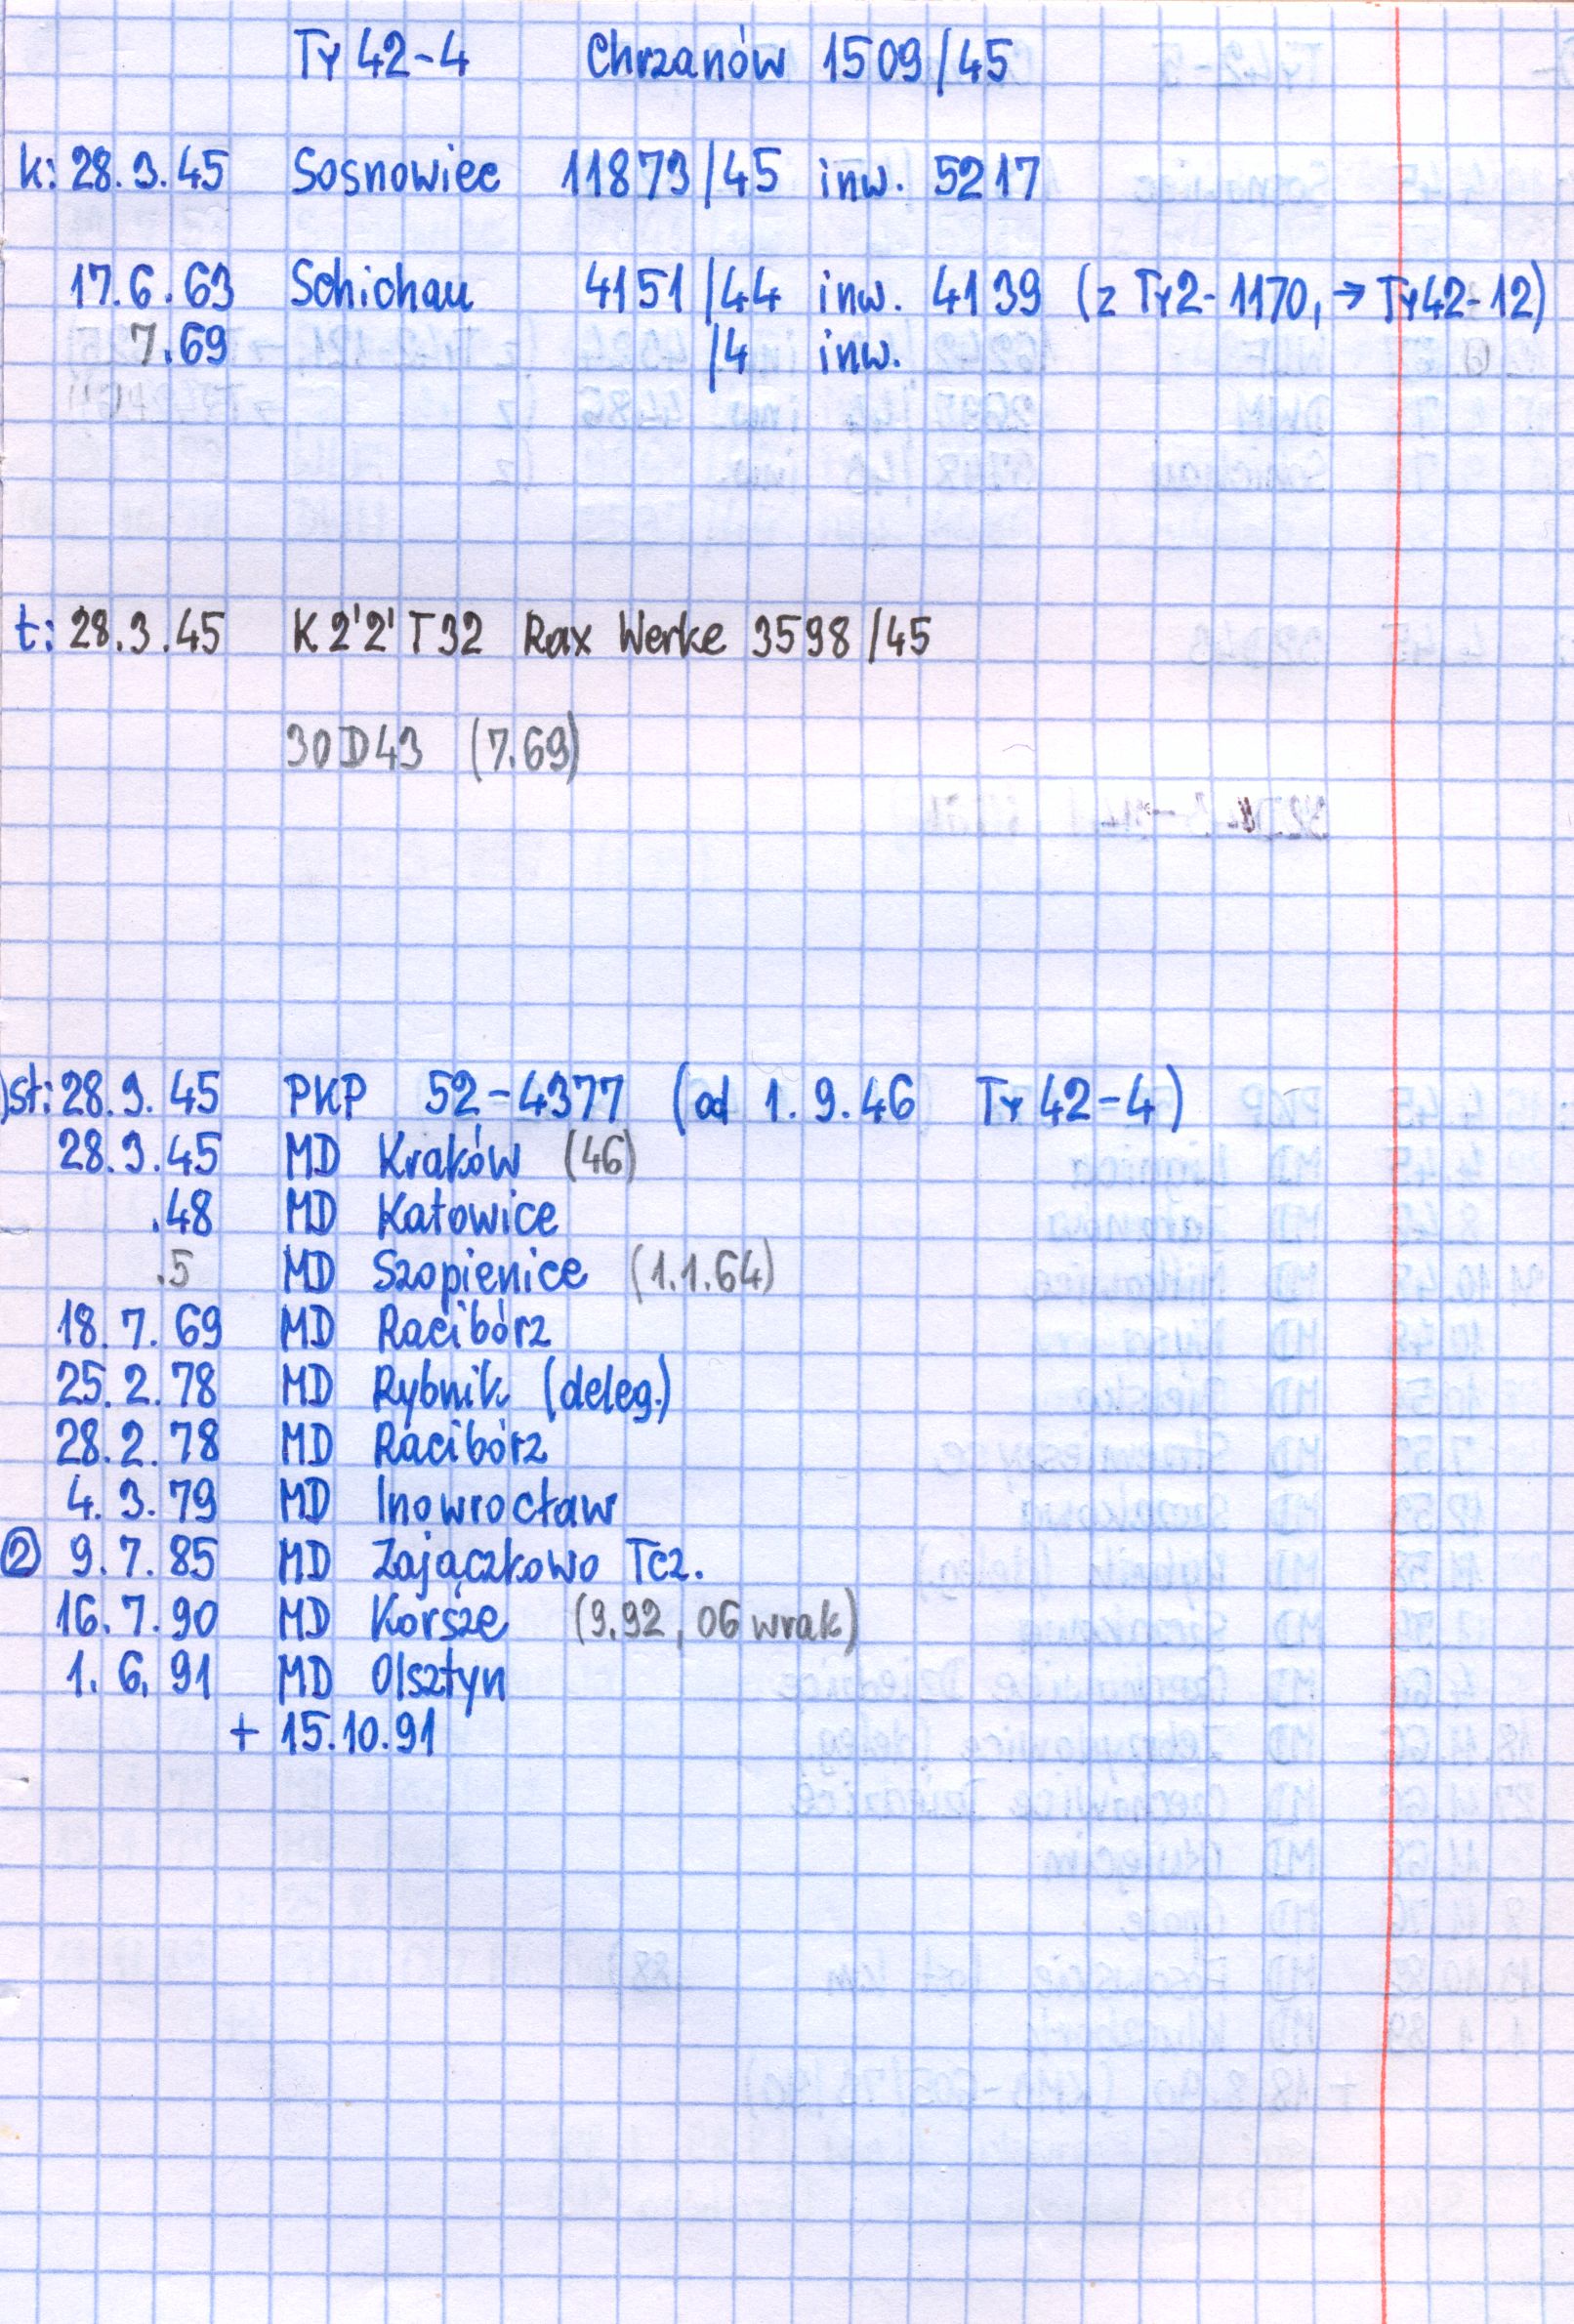 Ty 42-4 Chrzanów 1509/45
k: 28.3.45 Sosnowiec 11873/45 inw. 5217
17.6.63 Schichau 4151/44 inw. 4139 (z Ty2-1170, → Ty42-12)
7.69 /4 inw.
t: 28.3.45 K 2'2' T32 Rax Werke 3598/45
30D43 (7.69)
st: 28.3.45 PKP 52-4377 (od 1.9.46 Ty 42-4)
28.3.45 MD Kraków (46)
.48 MD Katowice
.5 MD Szopienice (1.1.64)
18.7.69 MD Racibórz
25.2.78 MD Rybnik (deleg.)
28.2.78 MD Racibórz
4.3.79 MD Inowrocław
② 9.7.85 MD Zajączkowo Tcz.
16.7.90 MD Korsze (9.92, 06 wrak)
1.6.91 MD Olsztyn
+ 15.10.91